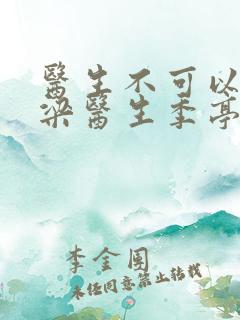 醫生不可以
梁醫生季亭
李金圉
未经同意禁止转载